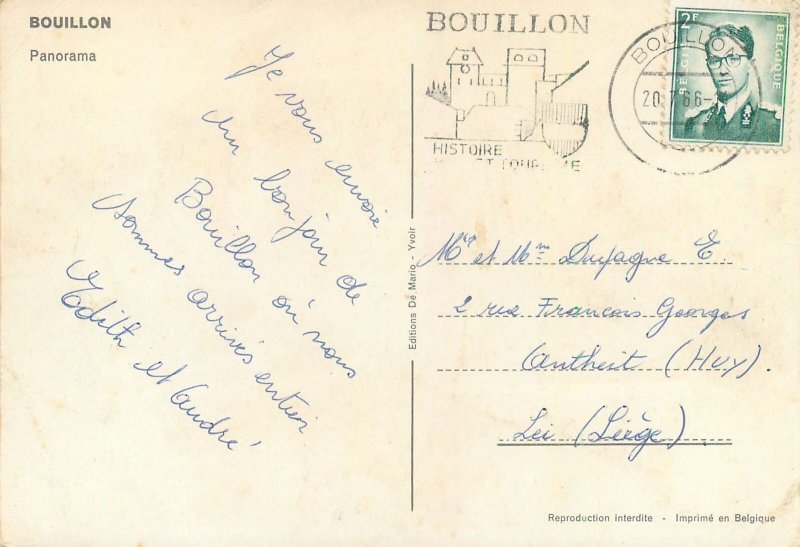 BOUILLON
Panorama
Je vous envoie
un bonjour de
Bouillon où nous
sommes arrivés entier
Edith et André
Editions De Mario - Yvoir
BOUILLON
HISTOIRE
ET TOURISME
BOUILLON
20.7.66-
2F
BELGIE
BELGIQUE
Mr et Mme Dufagne E.
2 rue François Georges
Antheit (Huy).
Lei (Liège)
Reproduction interdite - Imprimé en Belgique